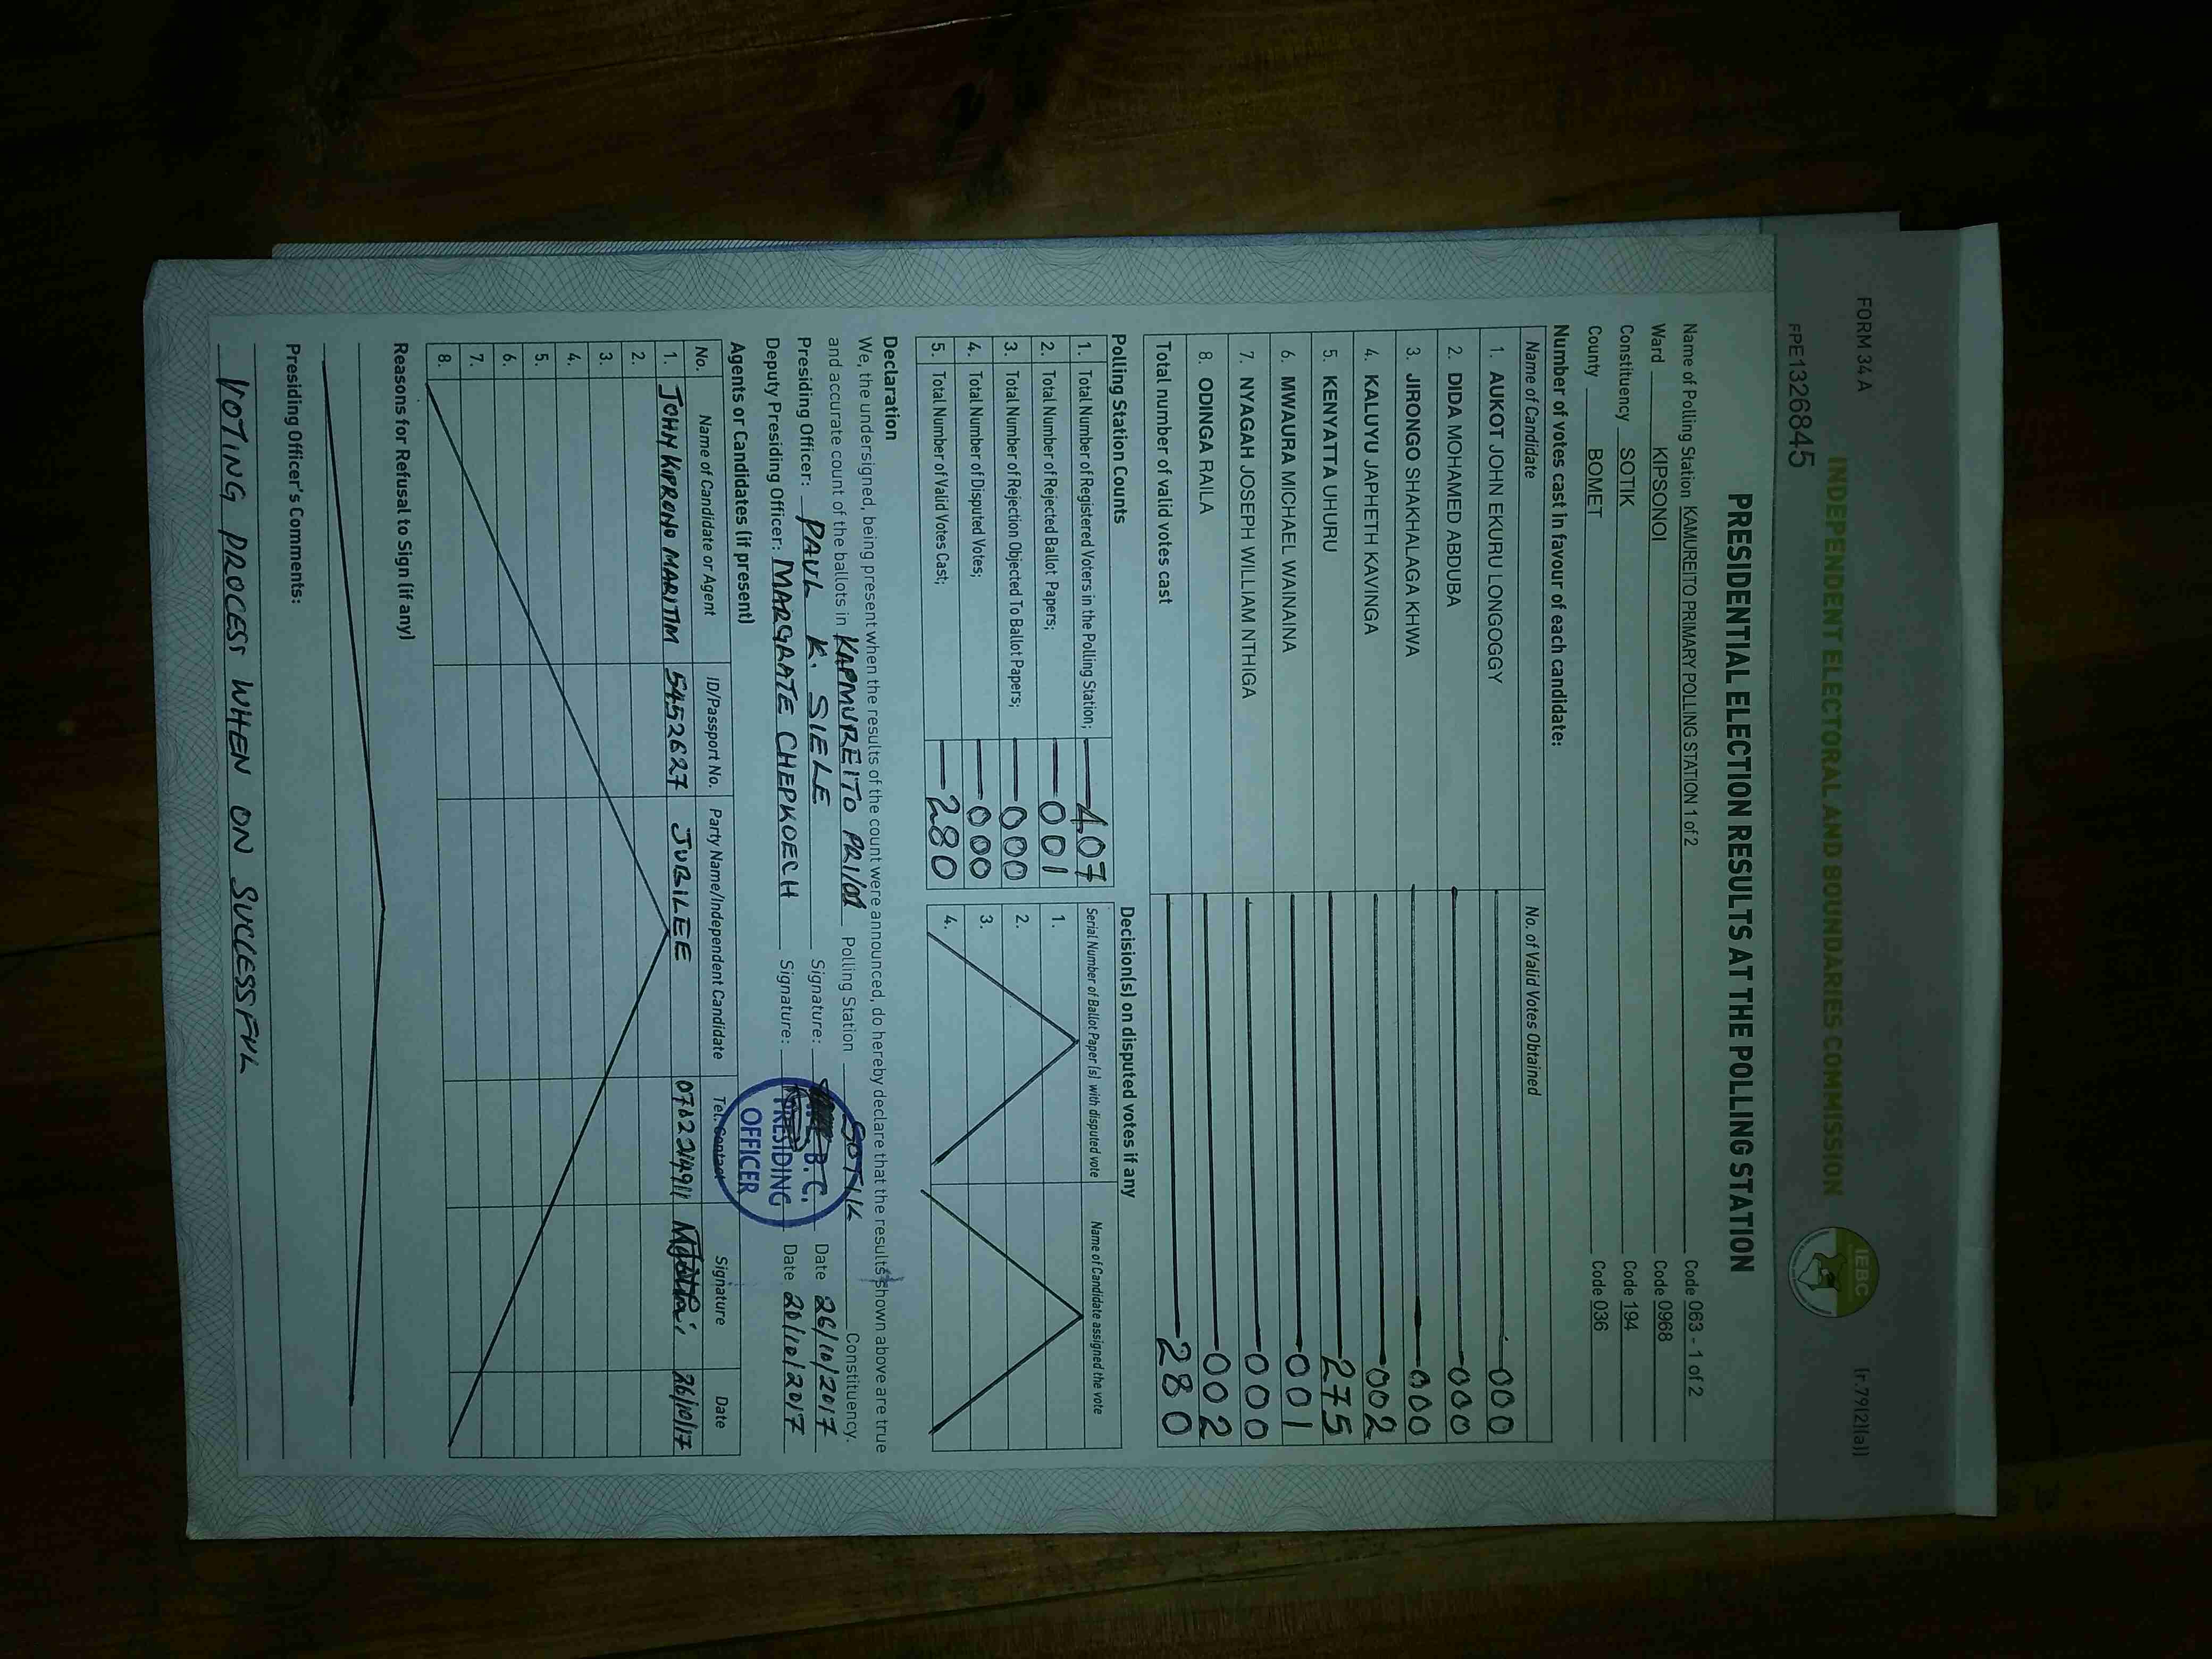 FORM 34A
(r.79(2)(a))
INDEPENDENT ELECTORAL AND BOUNDARIES COMMISSION
IEBC
FPE1326845
PRESIDENTIAL ELECTION RESULTS AT THE POLLING STATION
Name of Polling Station KAMUREITO PRIMARY POLLING STATION 1 of 2 Code 063 - 1 of 2
Ward KIPSONOI Code 0968
Constituency SOTIK Code 194
County BOMET Code 036
Number of votes cast in favour of each candidate:
Name of Candidate No. of Valid Votes Obtained
1. AUKOT JOHN EKURU LONGOGGY 000
2. DIDA MOHAMED ABDUBA 000
3. JIRONGO SHAKHALAGA KHWA 000
4. KALUYU JAPHETH KAVINGA 002
5. KENYATTA UHURU 275
6. MWAURA MICHAEL WAINAINA 001
7. NYAGAH JOSEPH WILLIAM NTHIGA 000
8. ODINGA RAILA 002
Total number of valid votes cast 280
Polling Station Counts
1. Total Number of Registered Voters in the Polling Station; 407
2. Total Number of Rejected Ballot Papers; 001
3. Total Number of Rejection Objected To Ballot Papers; 000
4. Total Number of Disputed Votes; 000
5. Total Number of Valid Votes Cast; 280
Decision(s) on disputed votes if any
Serial Number of Ballot Paper (s) with disputed vote Name of Candidate assigned the vote
1.
2.
3.
4.
Declaration
We, the undersigned, being present when the results of the count were announced, do hereby declare that the results shown above are true
and accurate count of the ballots in KAPMUREITO PRI/001 Polling Station SOTIK Constituency.
Presiding Officer: PAUL K. SIELE Signature: Date 26/10/2017
Deputy Presiding Officer: MARGRATE CHEPKOECH Signature: Date 26/10/2017
B. C.
PRESIDING
OFFICER
Agents or Candidates (if present)
No. Name of Candidate or Agent ID/Passport No. Party Name/Independent Candidate Tel. Contact Signature Date
1. JOHN KIPRONO MARITIM 5452627 JUBILEE 26/10/17
2.
3.
4.
5.
6.
7.
8.
Reasons for Refusal to Sign (if any)
Presiding Officer's Comments:
VOTING PROCESS WHEN ON SUCCESSFUL